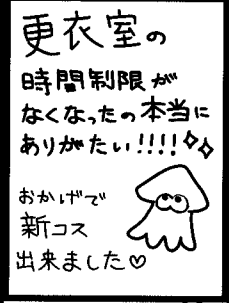 更衣室の
時間制限が
なくなったの本当に
ありがたい!!!!
おかげで
新コス
出来ました♡